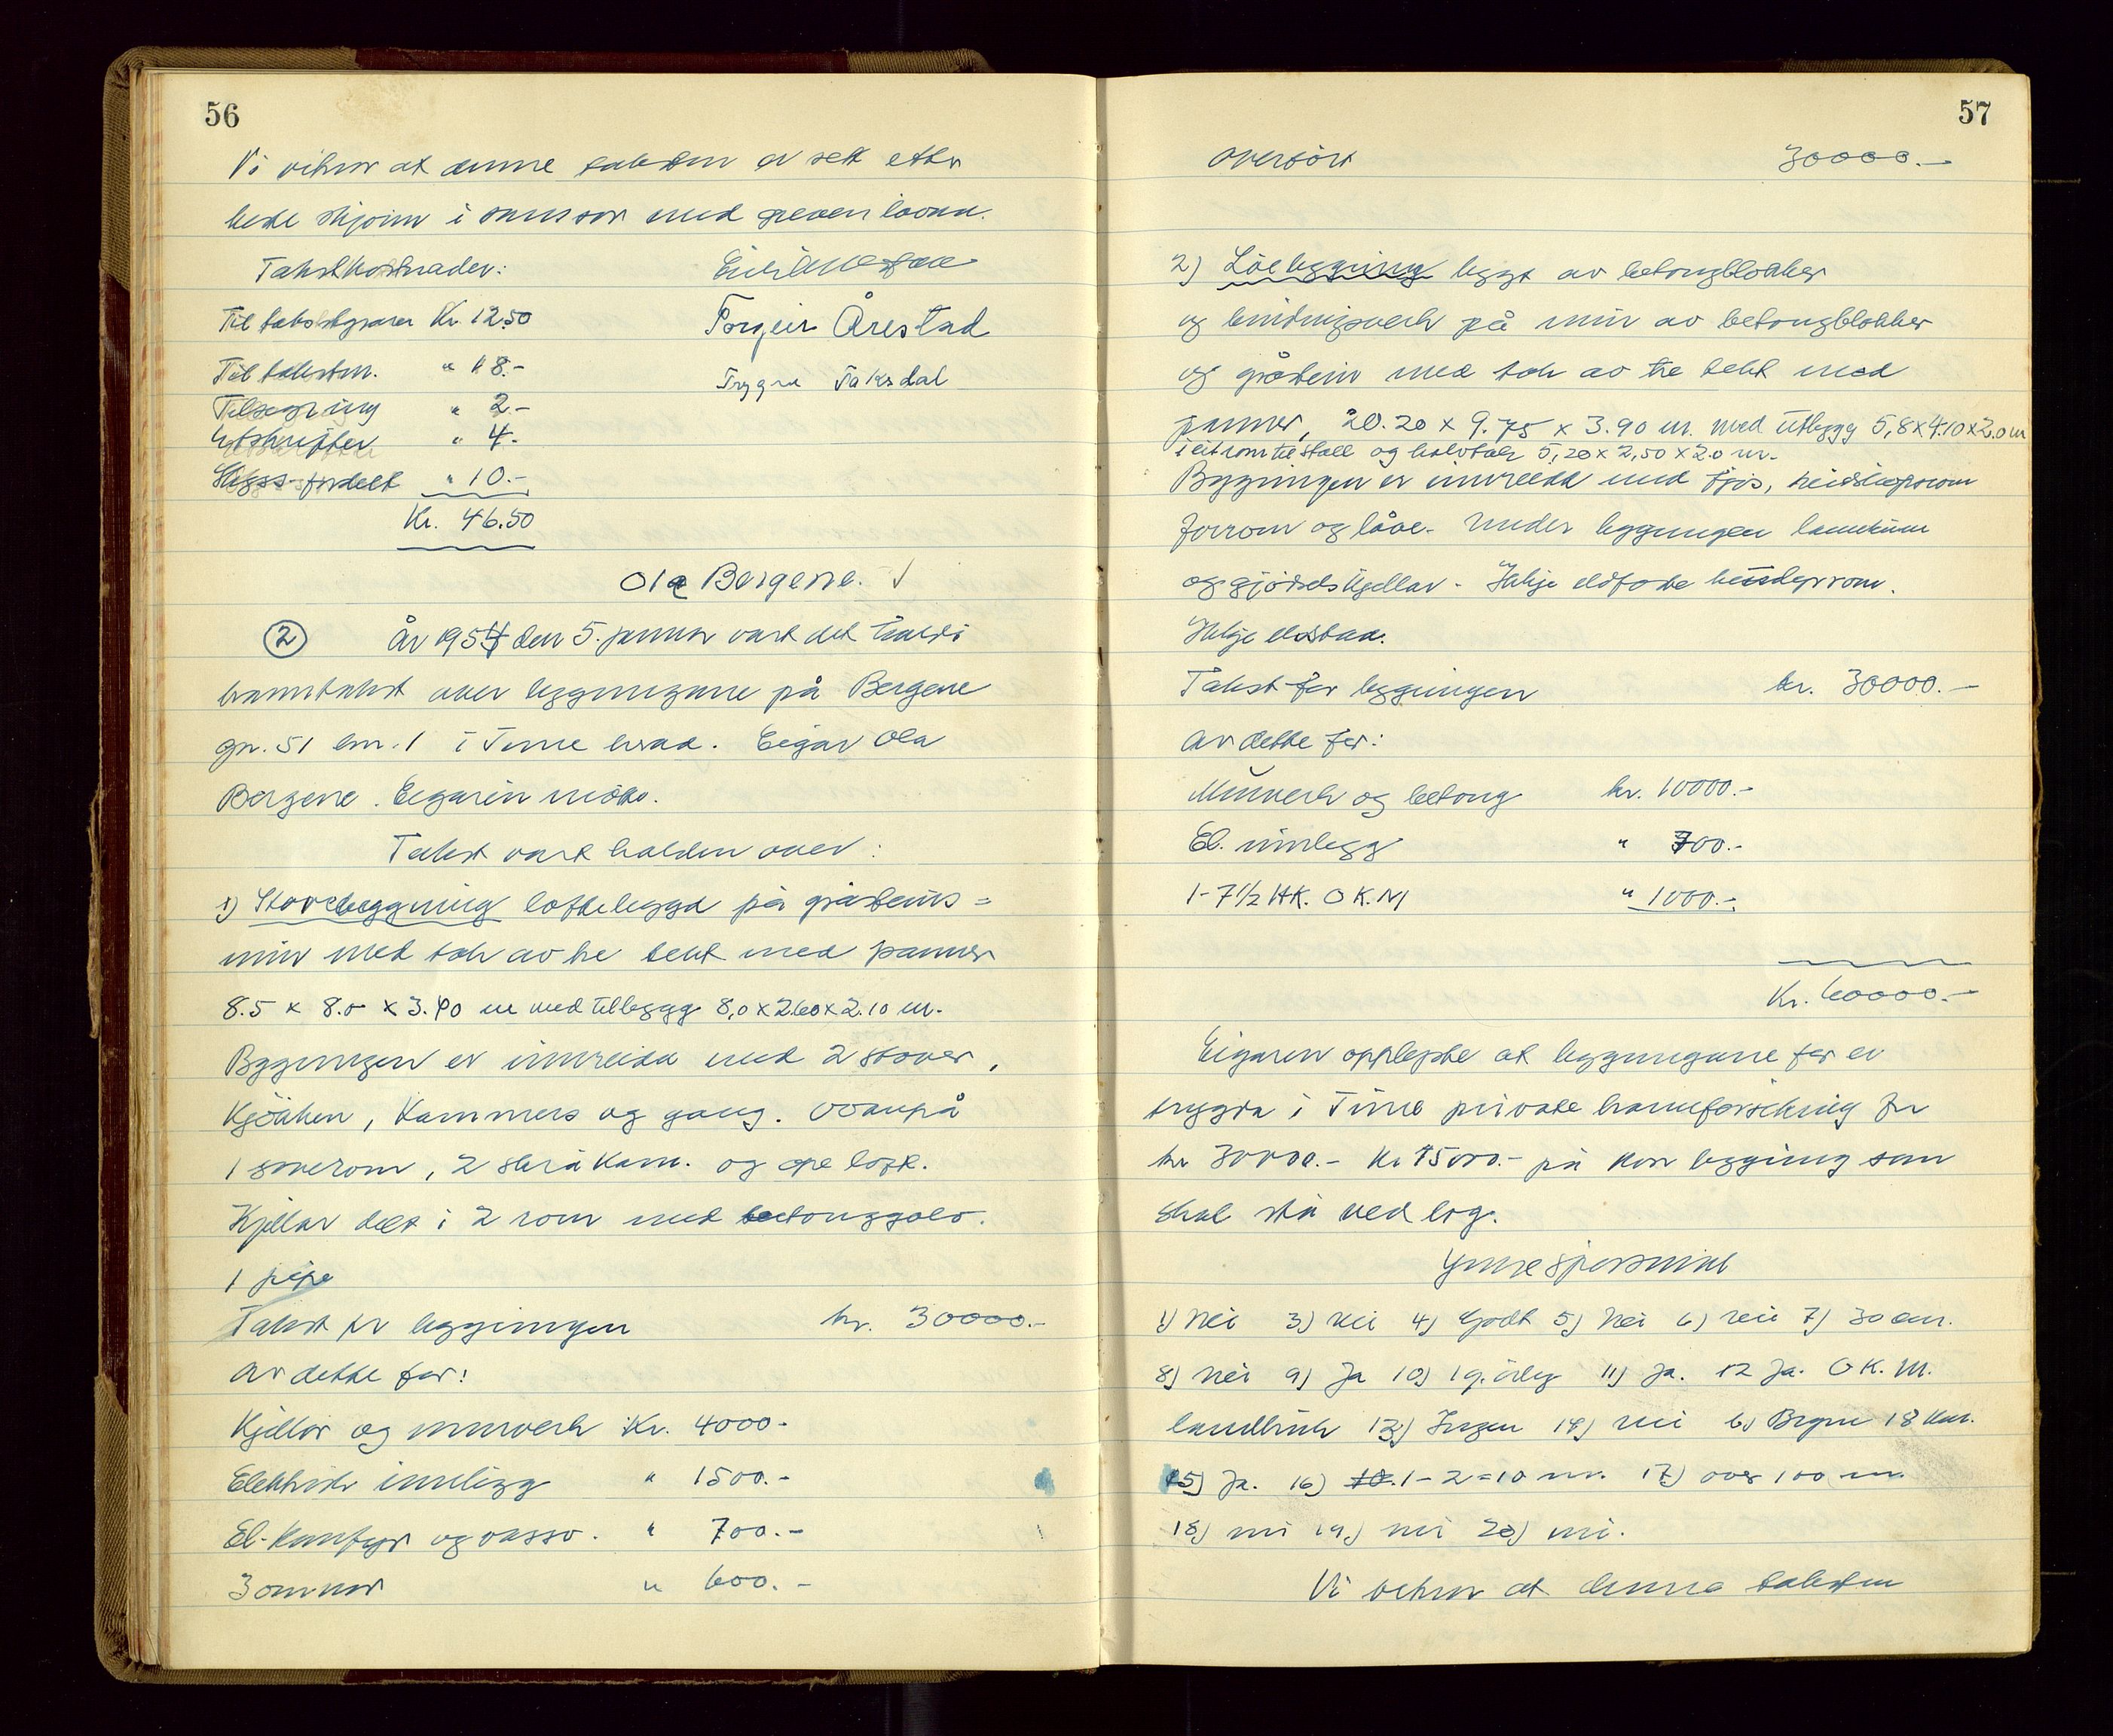 56
Vi vitnar at denne taksten er sett etter
beste skjønn i samsvar med greven lovna.
Takstkostnader:
Torgeir Årestad
Trygve Taksdal
Til takstgivarar Kr. 12.50
Til takstm. " 18.-
Tilsegning " 2.-
Utskrifter " 4.-
Skyss-fordelt " 10.-
Kr. 46.50
Ola Bergene. √
② År 1954 den 5. januar vart det halde
branntakst over bygningane på Bergene
gn. 51 bn. 1 i Time herad. Eigar Ola
Bergene. Eigaren møtte.
Takst vart halden over:
1) Stovebygning loftebygd på gråsteins=
mur med tak av tre tekt med panner
8.5 x 8.0 x 3.90 m med tilbygg 8,0 x 2.60 x 2.10 m.
Bygningen er innreidd med 2 stover,
Kjøkken, Kammers og gang. Ovanpå
1 soverom, 2 skråkam. og ope loft.
Kjellar delt i 2 rom med betonggolv.
1 pipe
Takst for bygningen kr. 30000.-
Av dette for:
Kjellar og murverk Kr. 4000-
Elektrisk innlegg " 1500.-
El-Komfyr og vassv. " 700.-
3 omnar " 600.-
57
Overført 30000.-
2) Løebygning bygt av betongblokker
og bindingsverk på mur av betongblokker
og gråstein med tak av tre tekt med
panner, 20.20 x 9.75 x 3.90 m. med utbygg 5,8 x 4.10 x 2.0 m
i eit rom til stall og halvtak 5,20 x 2,50 x 2.0 m.
Bygningen er innreidd med fjøs, reidskapsrom
forrom og låve. Under bygningen landkum
og gjødselskjellar. Ikkje eldfaste beredsrom.
Ikkje eldstad.
Takst for bygningen kr. 30000.-
Av dette for:
Murverk og betong kr. 10000.-
El. innlegg " 700.-
1- 7½ HK. O K.M " 1000.-
Kr. 60000.-
Eigaren opplyste at bygningane før er
trygda i Time private brannforsikring for
kr 30000.- Kr 15000.- på kvar bygning som
skal stå ved lag.
Ymse spørsmål
1) Nei 3) Nei 4) Godt 5) Nei 6) nei 7) 30 cm.
8) Nei 9) Ja 10) 1 g. årleg 11) Ja. 12 Ja. O K. M.
landbruk 13) Ingen 14) nei b) Bryne 18 km.
15) Ja. 16) 1 - 2 = 10 m. 17) over 100 m.
18) nei 19) nei 20) nei.
Vi vitnar at denne taksten